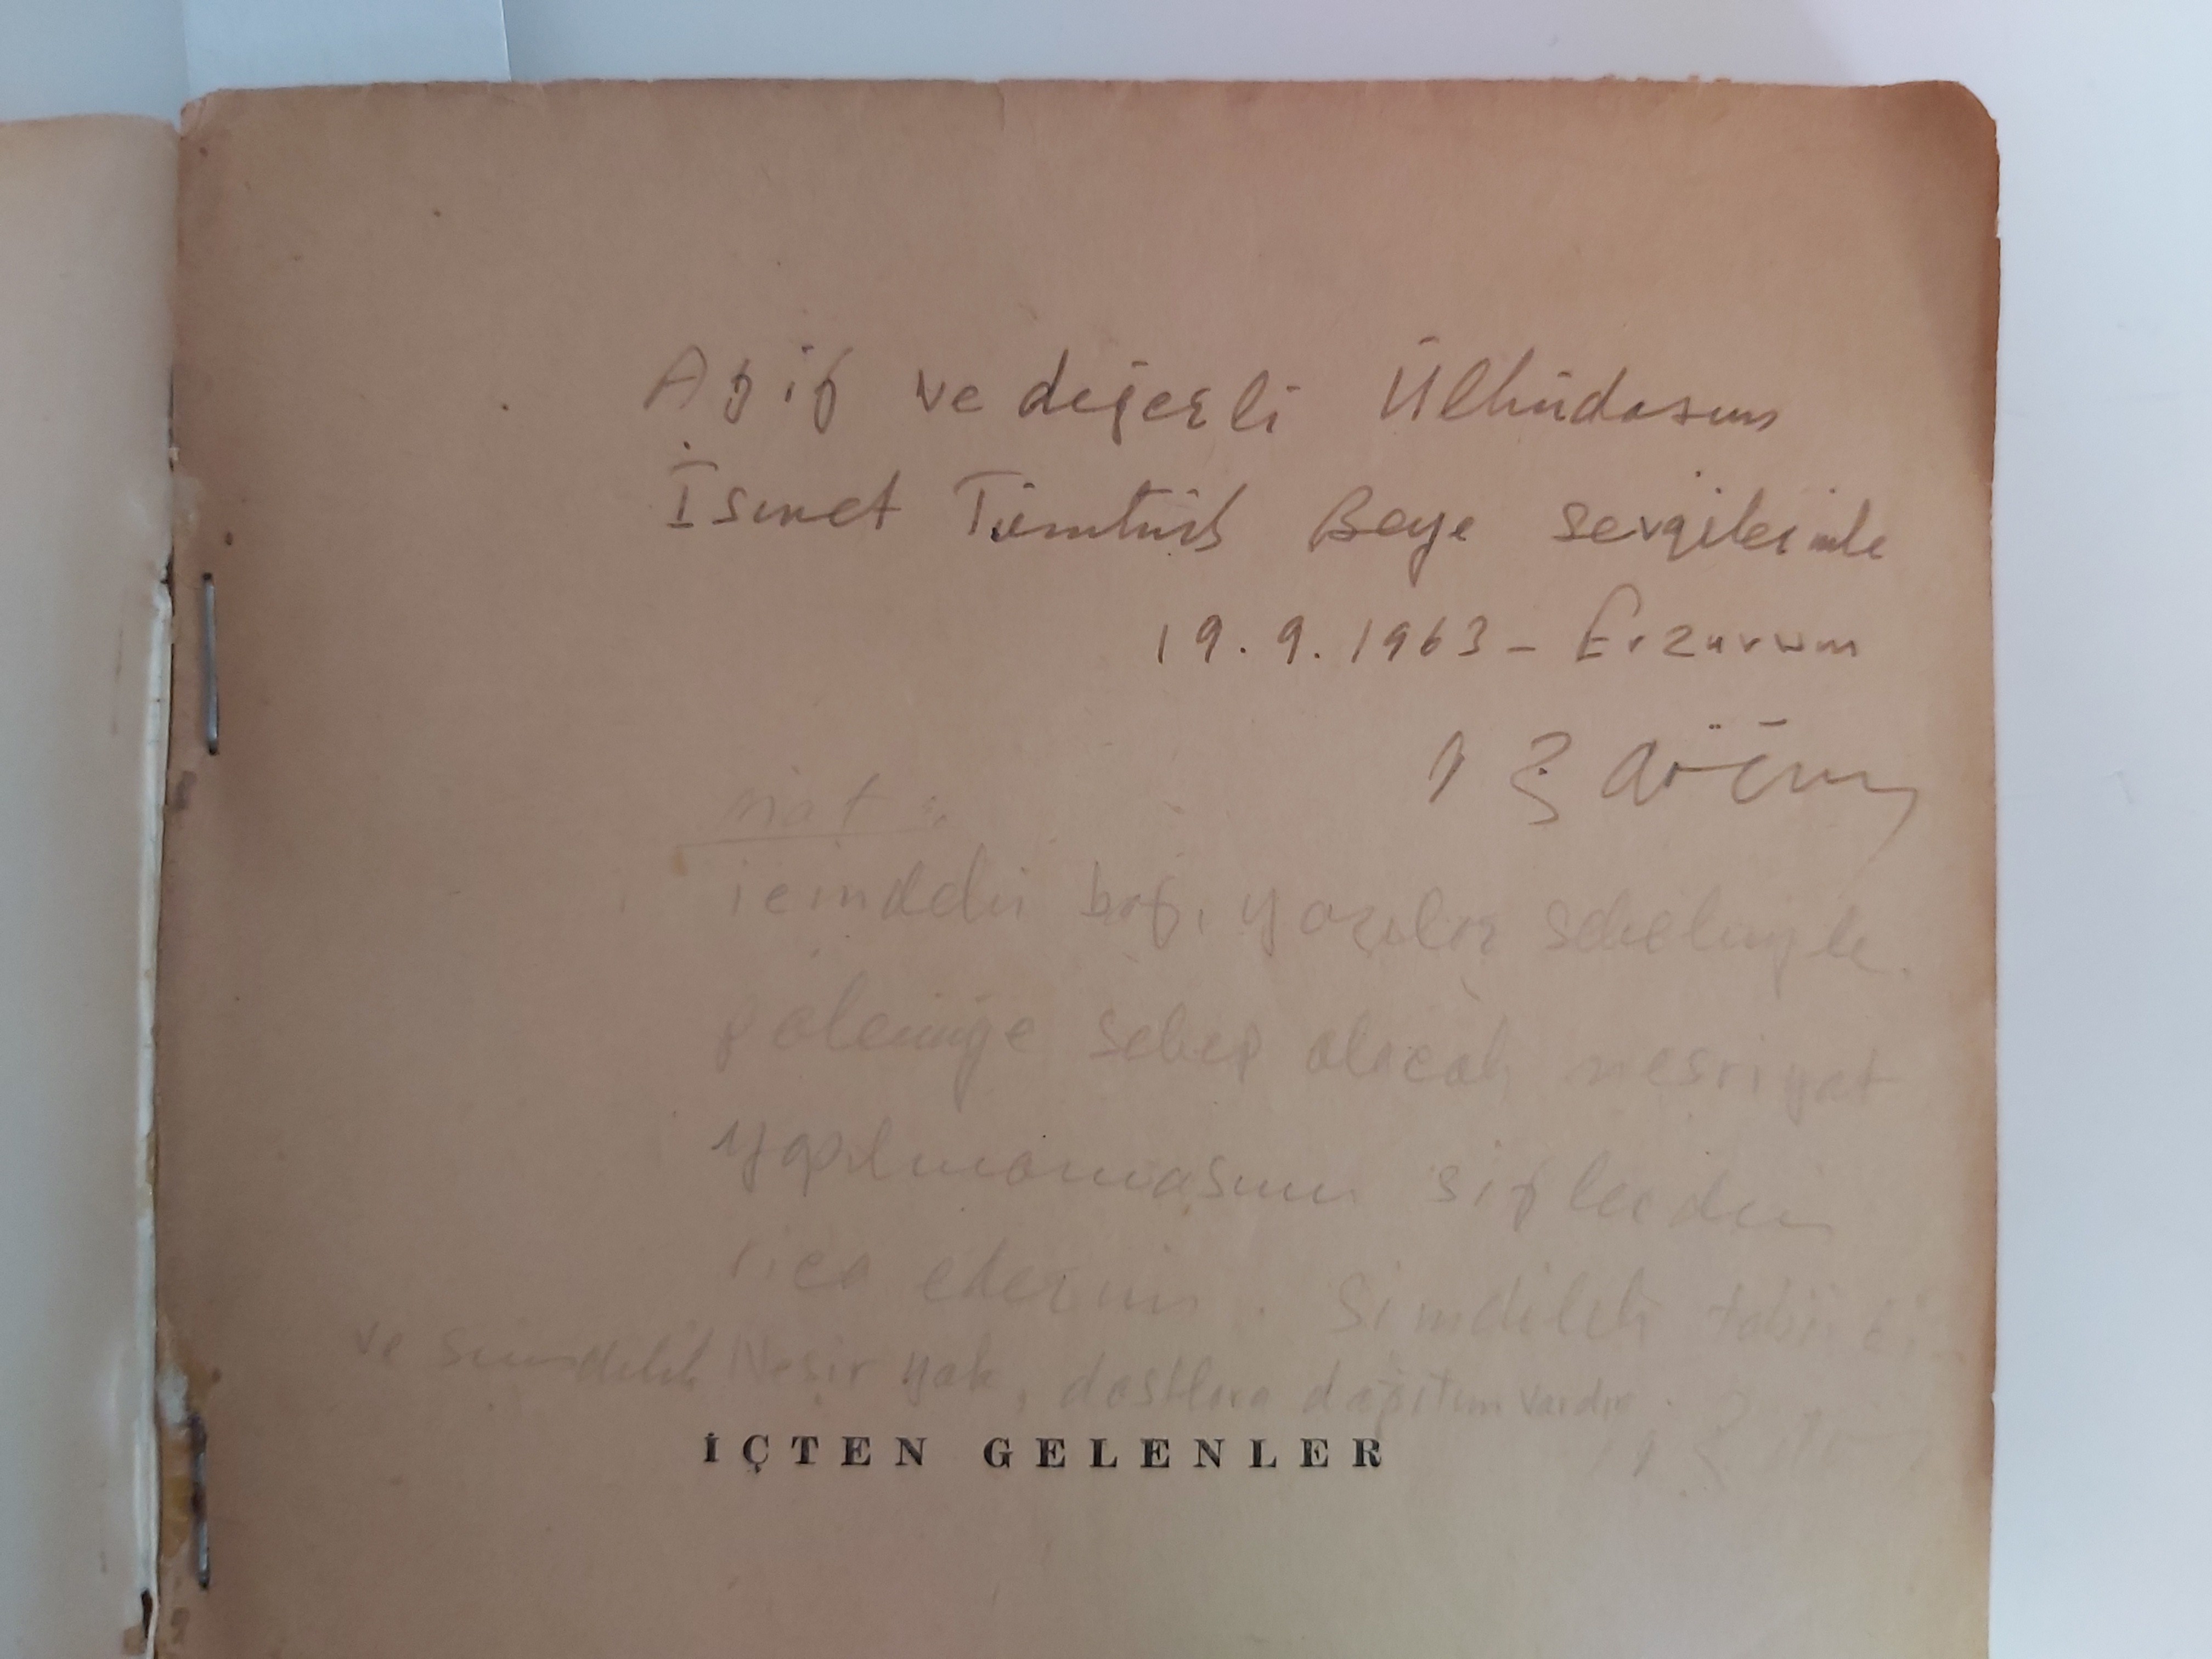 Aziz ve değerli Ülküdaşım
İsmet Tümtürk Beye sevgilerimle
19.9.1963 - Erzurum
not :
içindeki bazı yazılar sebebiyle
polemiğe sebep olacak neşriyat
yapılmamasını sizlerden
rica ederim. Şimdilik tabii ki
ve şimdilik Neşir yok, dostlara dağıtım vardır.
İÇTEN GELENLER